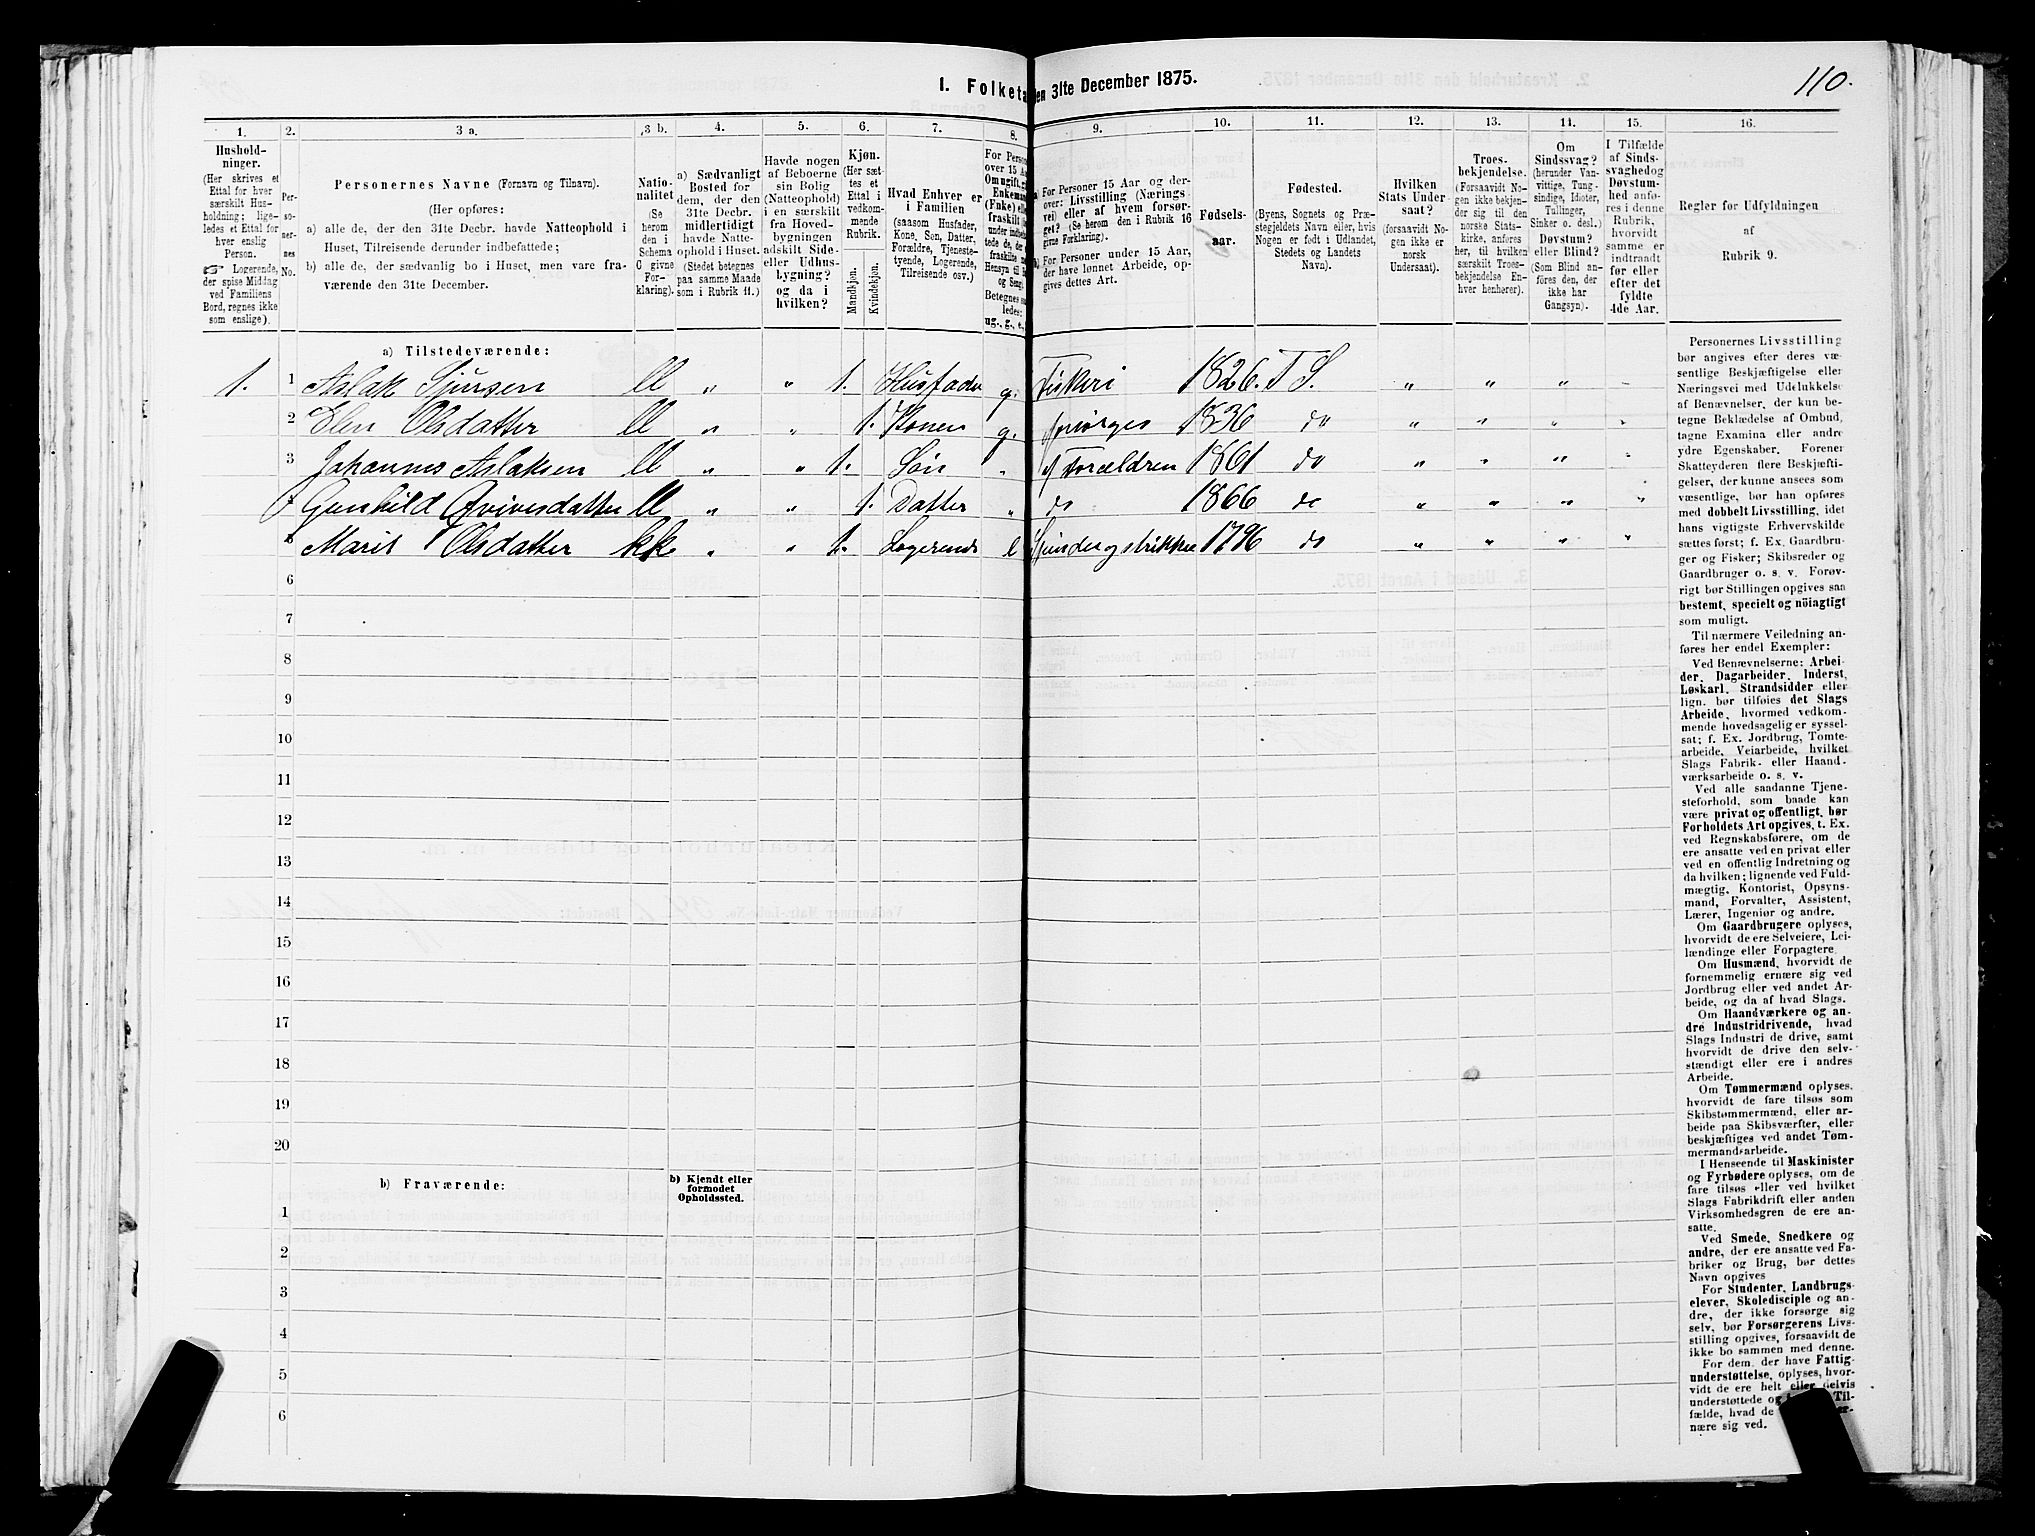 110.
I. Folketa en 31te December 1875.
1. 2. 3 a. 3 b. 4. 5. 6. 7. 8. 9. 10. 11. 12. 13. 14. 15. 16.
Hushold-
ninger.
(Her skrives et
Ettal for hver
særskilt Hus-
holdning; lige-
ledes et Ettal for
hver enslig
Person.
☞ Logerende,
der spise Middag
ved Familiens
Bord, regnes ikke
som enslige).
Per-
so-
ner-
nes
No.
Personernes Navne (Fornavn og Tilnavn).
(Her opføres:
a) alle de, der den 31te Decbr. havde Natteophold i
Huset, Tilreisende derunder indbefattede;
b) alle de, der sædvanlig bo i Huset, men vare fra-
værende den 31te December.
Natio-
nalitet
(Se
herom
den i
Schema
C givne
For-
klaring).
a) Sædvanligt
Bosted for
dem, der den
31te Decbr.
midlertidigt
havde Natte-
ophold i Huset.
(Stedet betegnes
paa samme Maade
som i Rubrik 11.)
Havde nogen
af Beboerne
sin Bolig
(Natteophold)
i en særskilt
fra Hoved-
bygningen
adskilt Side-
eller Udhus-
bygning?
og da i
hvilken?
Kjøn.
(Her sæt-
tes et
Ettal i
vedkom-
mende
Rubrik.
Mandkjøn.
Kvindekjøn.
Hvad Enhver er
i Familien
(saasom Husfader,
Kone, Søn, Datter,
Forældre, Tjeneste-
tyende, Logerende,
Tilreisende osv.)
For Perso
over 15 Aa
Om ugift, gi
Enkeman
(Fnke) elle
fraskilt
Betegnes saa
ledes:
ug., g., e.,
For Personer 15 Aar og der-
over: Livsstilling (Nærings-
vei) eller af hvem forsør-
get? (Se herom den i Rubrik 16
givne Forklaring).
For Personer under 15 Aar,
der have lønnet Arbeide, op-
gives dettes Art.
Fødsels-
aar.
Fødested.
(Byens, Sognets og Præ-
stegjeldets Navn eller, hvis
Nogen er født i Udlandet,
Stedets og Landets
Navn).
Hvilken
Stats Under-
saat?
(forsaavidt No-
gen ikke er
norsk
Undersaat).
Troes-
bekjendelse.
(Forsaavidt No-
gen ikke bekjen-
der sig til den
norske Stats-
kirke, anføres
her, til hvilken
særskilt Troes-
bekjendelse En-
hver henhører).
Om
Sindssvag?
(herunder Van-
vittige, Tung-
sindige, Idioter,
Tullinger,
Sinker o. desl.)
Døvstum?
eller Blind?
(Som Blind an-
føres den, der
ikke har
Gangsyn).
I Tilfælde
af Sinds-
svaghed og
Døvstum-
hed anfø-
res i denne
Rubrik,
hvorvidt
samme er
indtraadt
før eller
efter det
fyldte
4de Aar.
Regler for Udfyldningen
af
Rubrik 9.
a) Tilstedeværende:
1. 1 Aslak Sjursen ll „ „ 1. Husfader g. Fiskeri 1826. T S. „ „ „ –
2 Elen Olsdatter ll „ „ 1. Konen g. forsørges 1836 do „ „ „ „
3 Johannes Aslaksen ll „ „ 1. Søn „ af Forældren 1861 do „ „ „ „
4 Gunhild Qvivesdatter ll „ „ 1. Datter „ do 1866 do „ „ „ „
5 Marit Olsdatter kk „ „ 1. Logerende e Spinder og strikker 1796 do „ „ „ „
6
7
8
9
10
11
12
13
14
15
16
17
18
19
20
b) Fraværende:
b) Kjendt eller
formodet
Opholdssted.
1
2
3
4
5
6
Personernes Livsstilling
bør angives efter deres væ-
sentlige Beskjæftigelse eller
Næringsvei med Udelukkelse
af Benævnelser, der kun be-
tegne Beklædelse af Ombud,
tagne Examina eller andre
ydre Egenskaber. Forener
Skatteyderen flere Beskjæfti-
gelser, der kunne ansees som
væsentlige, bør han opføres
med dobbelt Livsstilling, idet
hans vigtigste Erhvervskilde
sættes først; f. Ex. Gaardbru-
ger og Fisker; Skibsreder og
Gaardbruger o. s. v. Forøv-
rigt bør Stillingen opgives saa
bestemt, specielt og nöiagtigt
som muligt.
Til nærmere Veiledning an-
føres her endel Exempler:
Ved Benævnelserne: Arbei-
der, Dagarbeider, Inderst,
Løskarl, Strandsidder eller
lign. bør tilføies det Slags
Arbeide, hvormed vedkom-
mende hovedsagelig er syssel-
sat; f. Ex. Jordbrug, Tomte-
arbeide, Veiarbeide, hvilket
Slags Fabrik- eller Haand-
værksarbeide o. s. v.
Ved alle saadanne Tjene-
steforhold, som baade kan
være privat og offentligt, bør
Forholdets Art opgives, t. Ex.
ved Regnskabsførere, om de
ere ansatte ved en privat eller
ved en offentlig Indretning og
da hvilken; lignende ved Fuld-
mægtig, Kontorist, Opsyns-
mand, Forvalter, Assistent,
Lærer, Ingeniør og andre.
Om Gaardbrugere oplyses,
hvorvidt de ere Selveiere, Lei-
lændinge eller Forpagtere
Om Husmænd, hvorvidt de
fornemmelig ernære sig ved
Jordbrug eller ved andet Ar-
beide, og da af hvad Slags.
Om Haandværkere og an-
dre Industridrivende, hvad
Slags Industri de drive, samt
hvorvidt de drive den selv-
stændigt eller ere i andres
Arbeide.
Om Tømmermænd oplyses,
hvorvidt de fare tilsøs som
Skibstømmermænd, eller ar-
beide paa Skibsværfter, eller
beskjæftiges ved andet Tøm-
mermandsarbeide.
I Henseende til Maskinister
og Fyrbødere oplyses, om de
fare tilsøs eller ved hvilket
Slags Fabrikdrift eller anden
Virksomhedsgren de ere an-
satte.
Ved Smede, Snedkere og
andre, der ere ansatte ved Fa-
briker og Brug, bør dettes
Navn opgives
For Studenter, Landbrugs-
elever, Skoledisciple og an-
dre, der ikke forsørge sig
selv, bør Forsørgerens Livs-
stilling opgives, forsaavidt de
ikke bo sammen med denne.
For dem, der have Fattig-
understøttelse, oplyses, hvor-
vidt de ere helt eller delvis
understøttede og Til-
fælde, hvad de
nære sig ved.